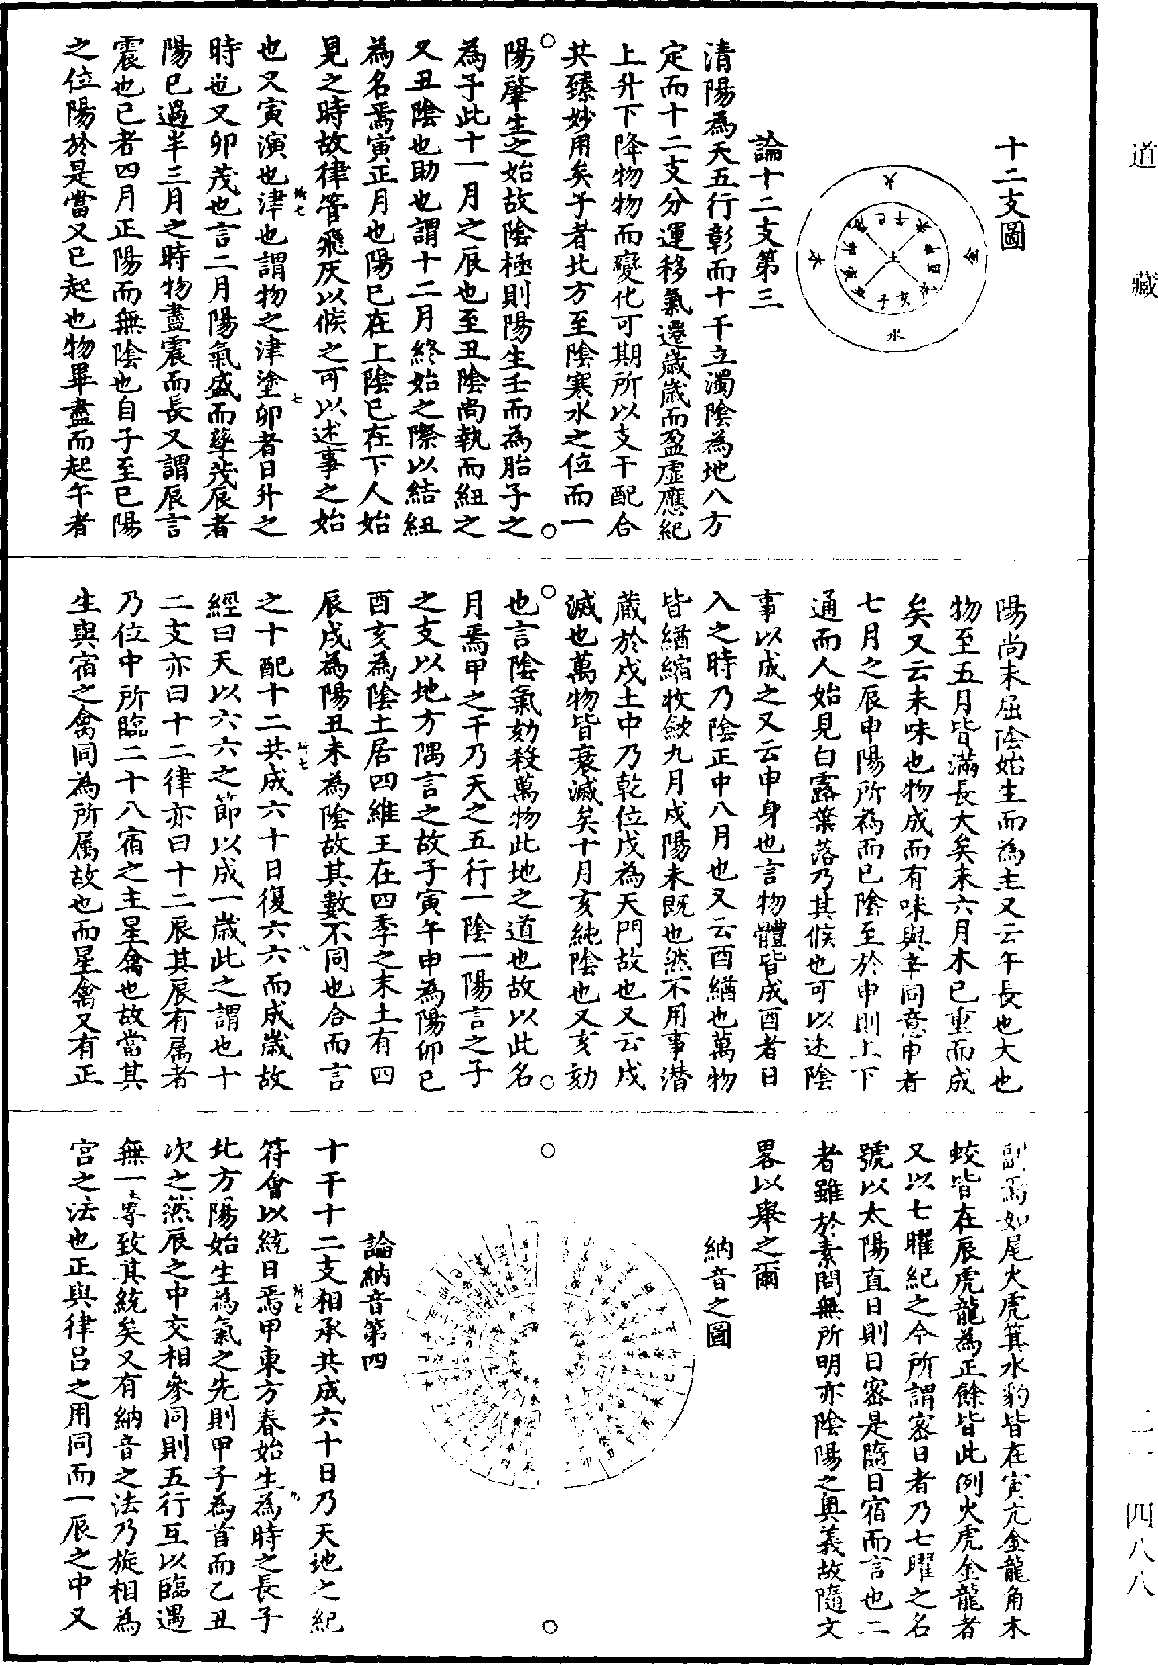 道藏
十二支圖
火
金
木
水
土
論十二支第三
清陽為天五行彰而十干立濁陰為地八方
定而十二支分運移氣遷歲歲而盈虛應紀
上升下降物物而變化可期所以支干配合
共臻妙用矣子者北方至陰寒水之位而一
陽肇生之始故陰極則陽生壬而為胎子之
為子此十一月之辰也至丑陰尚執而紐之
又丑陰也助也謂十二月終始之際以結紐
為名焉寅正月也陽已在上陰已在下人始
見之時故律管飛灰以候之可以述事之始
也又寅演也津也謂物之津塗卯者日升之
時也又卯茂也言二月陽氣盛而孳茂辰者
陽已過半三月之時物盡震而長又謂辰言
震也巳者四月正陽而無陰也自子至巳陽
之位陽於是當又巳起也物畢盡而起午者
陽尚未屈陰始生而為主又云午長也大也
物至五月皆滿長大矣未六月木已重而成
矣又云未味也物成而有味與辛同意申者
七月之辰申陽所為而已陰至於申則上下
通而人始見白露葉落乃其候也可以述陰
事以成之又云申身也言物體皆成酉者日
入之時乃陰正中八月也又云酉緧也萬物
皆緧縮收斂九月戌陽未既也然不用事潛
藏於戌土中乃乾位戌為天門故也又云戌
滅也萬物皆衰滅矣十月亥純陰也又亥劾
也言陰氣劾殺萬物此地之道也故以此名
月焉甲之干乃天之五行一陰一陽言之子
之支以地方隅言之故子寅午申為陽卯巳
酉亥為陰土居四維王在四季之末土有四
辰戌為陽丑未為陰故其數不同也合而言
之十配十二共成六十日復六六而成歲故
經曰天以六六之節以成一歲此之謂也十
二支亦曰十二律亦曰十二辰其辰有屬者
乃位中所臨二十八宿之主星禽也故當其
生與宿之禽同為所屬故也而星禽又有正
副焉如尾火虎箕水豹皆在寅亢金龍角木
蛟皆在辰虎龍為正餘皆此例火虎金龍者
又以七曜紀之今所謂密日者乃七曜之名
號以太陽直日則日密是隨日宿而言也二
者雖於素問無所明亦陰陽之奧義故隨文
畧以舉之爾
納音之圖
論納音第四
十干十二支相承共成六十日乃天地之紀
符會以統日焉甲東方春始生為時之長子
北方陽始生為氣之先則甲子為首而乙丑
次之然辰之中交相參同則五行互以臨遇
無一專致其統矣又有納音之法乃旋相為
宫之法也正與律呂之用同而一辰之中又
四八八